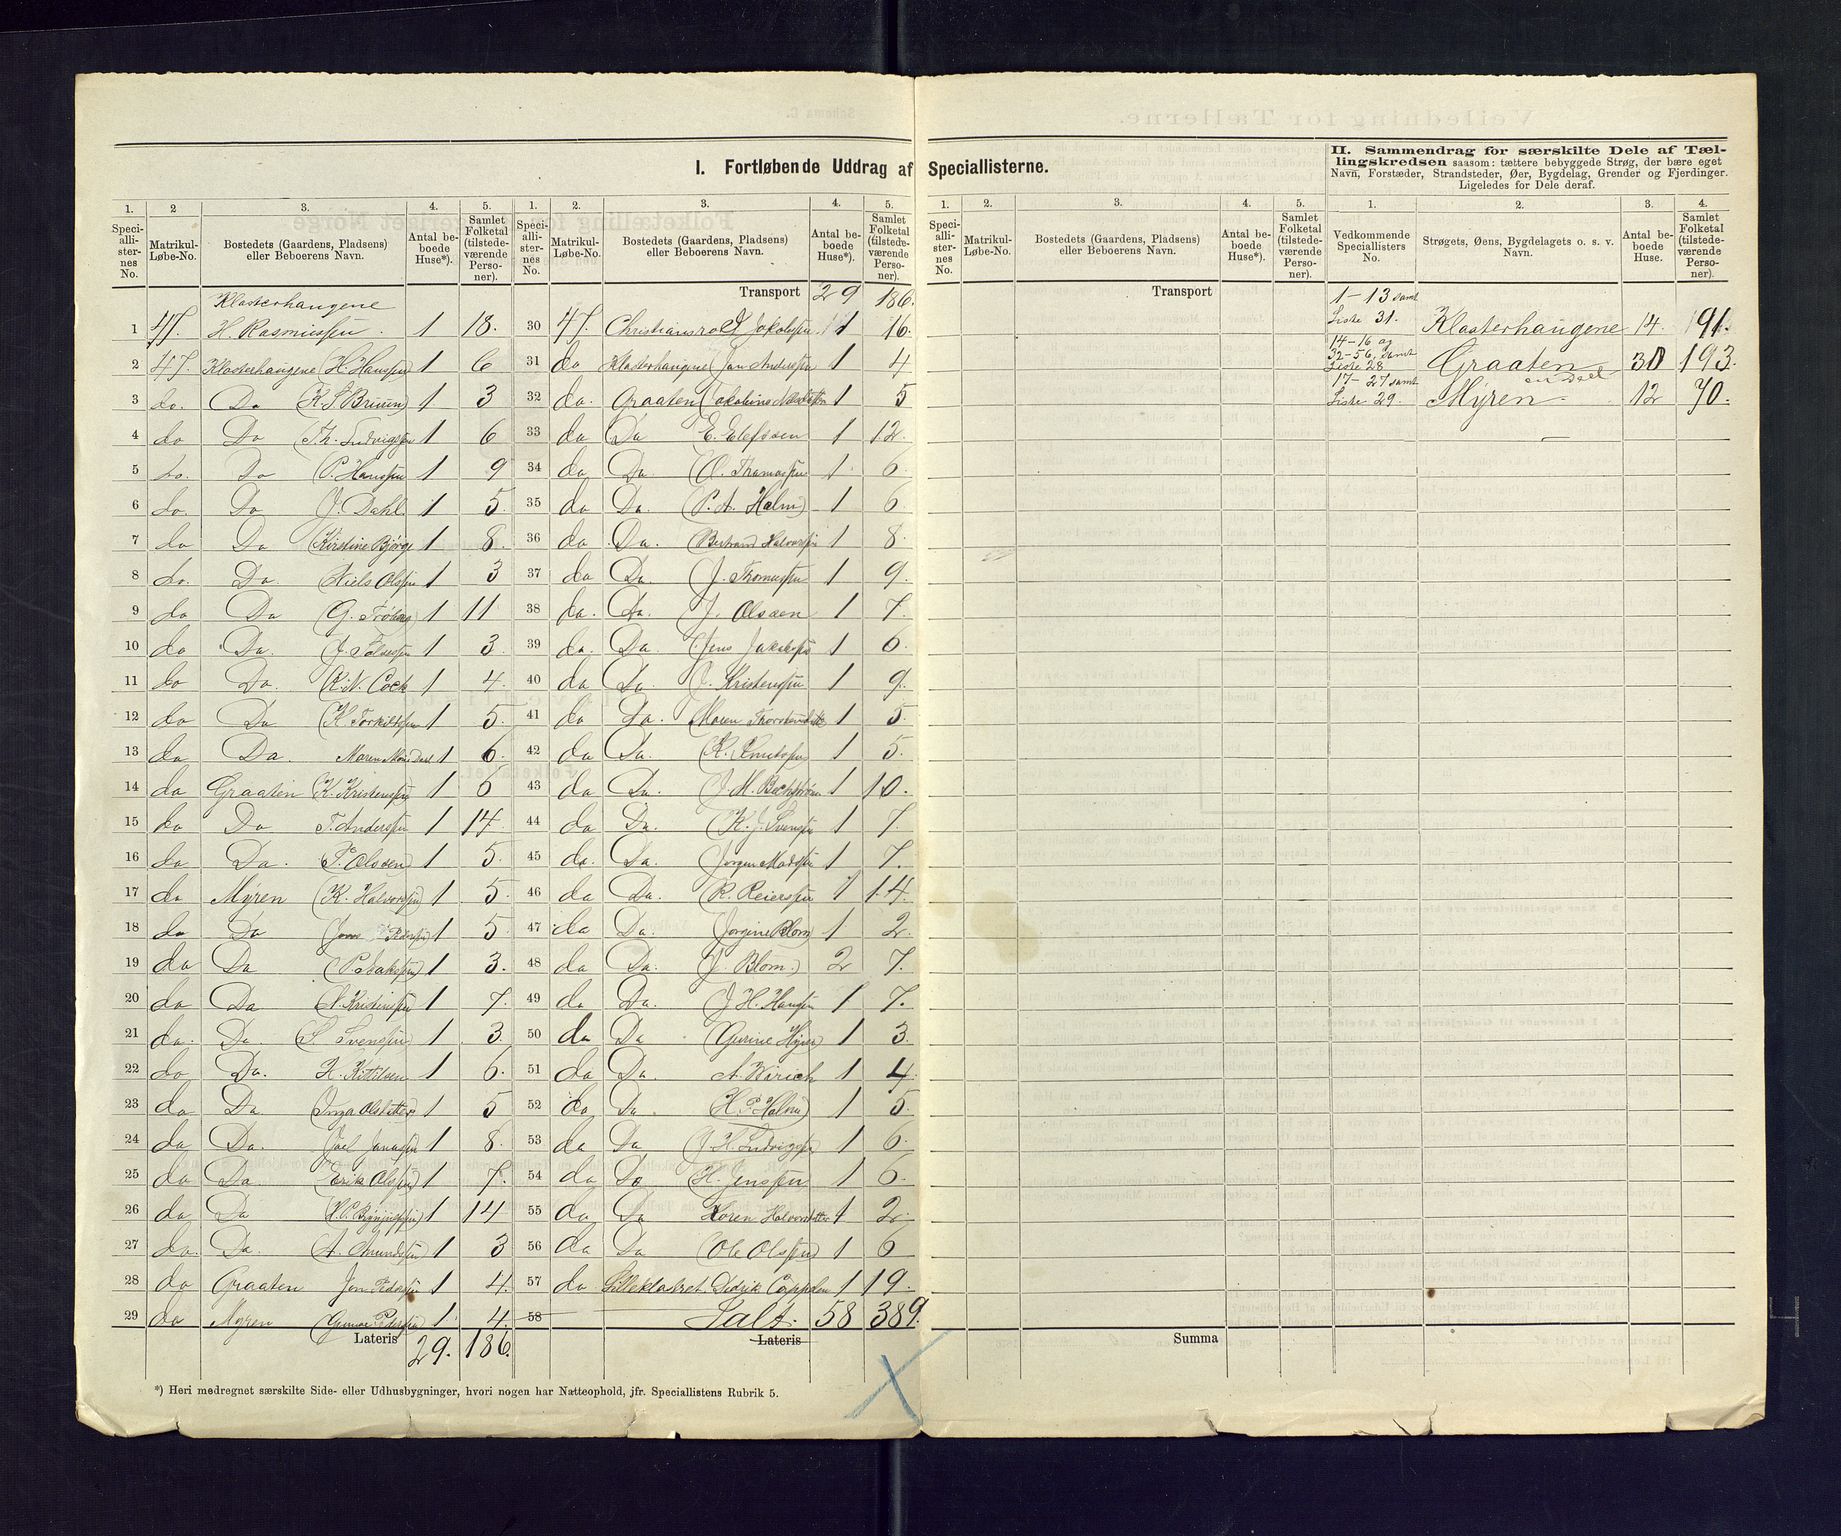 I. Fortløbende Uddrag af Speciallisterne.
II. Sammendrag for særskilte Dele af Tæl-
lingskredsen saasom: tættere bebyggede Strøg, der bære eget
Navn, Forstæder, Strandsteder, Øer, Bygdelag, Grender og Fjerdinger.
Ligeledes for Dele deraf.
1. 2 3. 4. 5.
Speci-alli-ster-nes No. Matrikul-Løbe-No. Bostedets (Gaardens, Pladsens) eller Beboerens Navn. Antal be-boede Huse*). Samlet Folketal (tilstede-værende Perso-ner).
Klosterhaugene
1 47. H. Rasmussen 1 18.
2 47. Klosterhaugene (H. Hanssen) 1 6
3 do. Do 1 3
4 do Do (Th. Ludvigsen 1 6
5 do. Do (P. Hanssen 1 9
6 do. Do (J. Dahl. 1 5.
7 do Do (Kirstine Bjørge 1 8.
8 do. Do. Niels Olssen 1 3
9 do Do 1 11
10 do Do. 1 3.
11 do Do. (K. N. Cock 1 4.
12 do Do (K. Torkildsen 1 5.
13 do Do. 1 6.
14 do Graaten (K. Kristenssen 1 6
15 do Do T. Anderssen 1 14.
16 do Do. (P. Olssen) 1 5.
17 do Myren (K. Halvorssen) 1 5.
18 do Do Pederssen) 1 5.
19 do Do 1 3.
20 do Do 1 7.
21 do. Do. (S. Svenssen) 1 3.
22 do Do. K. Kittilsen 1 6.
23 do Do (Inga Olsdatter 1 5
24 do Do. 1 8.
25 do Do. (Erik Olssen) 1 7.
26 do Do 1 14
27 do. Do. (A. Amundssen) 1 3
28 do Graaten Jon Pederssen 1 4.
29 do Myren 1 4.
Lateris 29. 186.
1. 2. 3. 4. 5.
Speci-alli-ster-nes No. Matrikul-Løbe-No. Bostedets (Gaardens, Pladsens) eller Beboerens Navn. Antal be-boede Huse*). Samlet Folketal (tilstede-værende Perso-ner).
Transport 29 186.
30 47. Jakobssen 1 16.
31 do Klosterhaugene (Jon Anderssen 1 4
32 do. Graaten 1 5
33 do Do E. Elefssen 1 12.
34 do Do. (O. Thomassen 1 6
35 do Do. (P. A. Holm) 1 6
36 do Do. (Bertrand Halvorssen 1 8.
37 do Do. (J. Thomassen 1 9.
38 do. Do. J. Olssen 1 7.
39 do. Do. (Jens Jakobssen 1 6
40 do Do J. Kristenssen 1 9.
41 do Do. (Maren Thorstensdtt 1 5.
42 do Do. (K. Knutssen 1 5.
43 do Do. 1 10.
44 do Do. (K. J. Svenssen 1 7.
45 do. Do. Jørgen Madssen 1 7.
46 do Do. (R. Reierssen 1 14.
47 do Do. (Jørgine Blom) 1 2.
48 do Do. (J. Blom.) 2 7.
49 do Do. (J. H. Hanssen 1 7.
50 do Do 1 3.
51 do Do. A. Wirich 1 4.
52 do Do. (H. P. Holm) 1 5.
53 do Do (J. H. Ludvigssen 1 6.
54 do Do (H. Jenssen 1 6.
55 do Do Karen Halvorsdatter 1 2.
56 do Do (Ole Olssen) 1 6
57 do Lilleklostret Didrik Cappelen 1 19.
58 Ialt. 58 389.
Lateris
*) Heri medregnet særskilte Side- eller Udhusbygninger, hvori nogen har Natteophold, jfr. Speciallistens Rubrik 5.
1. 2. 3. 4. 5.
Speci-alli-ster-nes No. Matrikul-Løbe-No. Bostedets (Gaardens, Pladsens) eller Beboerens Navn. Antal be-boede Huse*). Samlet Folketal (tilstede-værende Perso-ner).
Transport
Summa
1. 2. 3. 4.
Vedkommende Speciallisters No. Strøgets, Øens, Bygdelagets o. s. v. Navn. Antal be-boede Huse. Samlet Folketal (tilstede-værende Personer).
1-13 samt
Liste 31. Klosterhaugene 14. 191.
14-16 og
32-56, samt
Liste 28 Graaten 30 193.
17-27 samt
Liste 29. Myren 12 70.